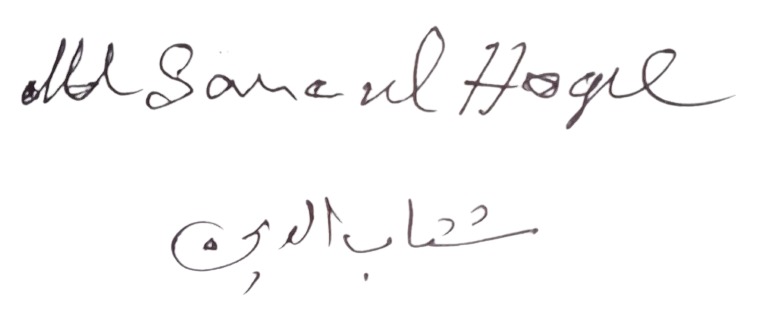 Md Sanaul Hoque
شهاب الدين